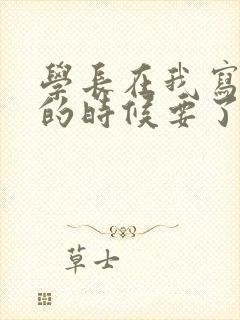 學長在我寫
的時候要了
草士